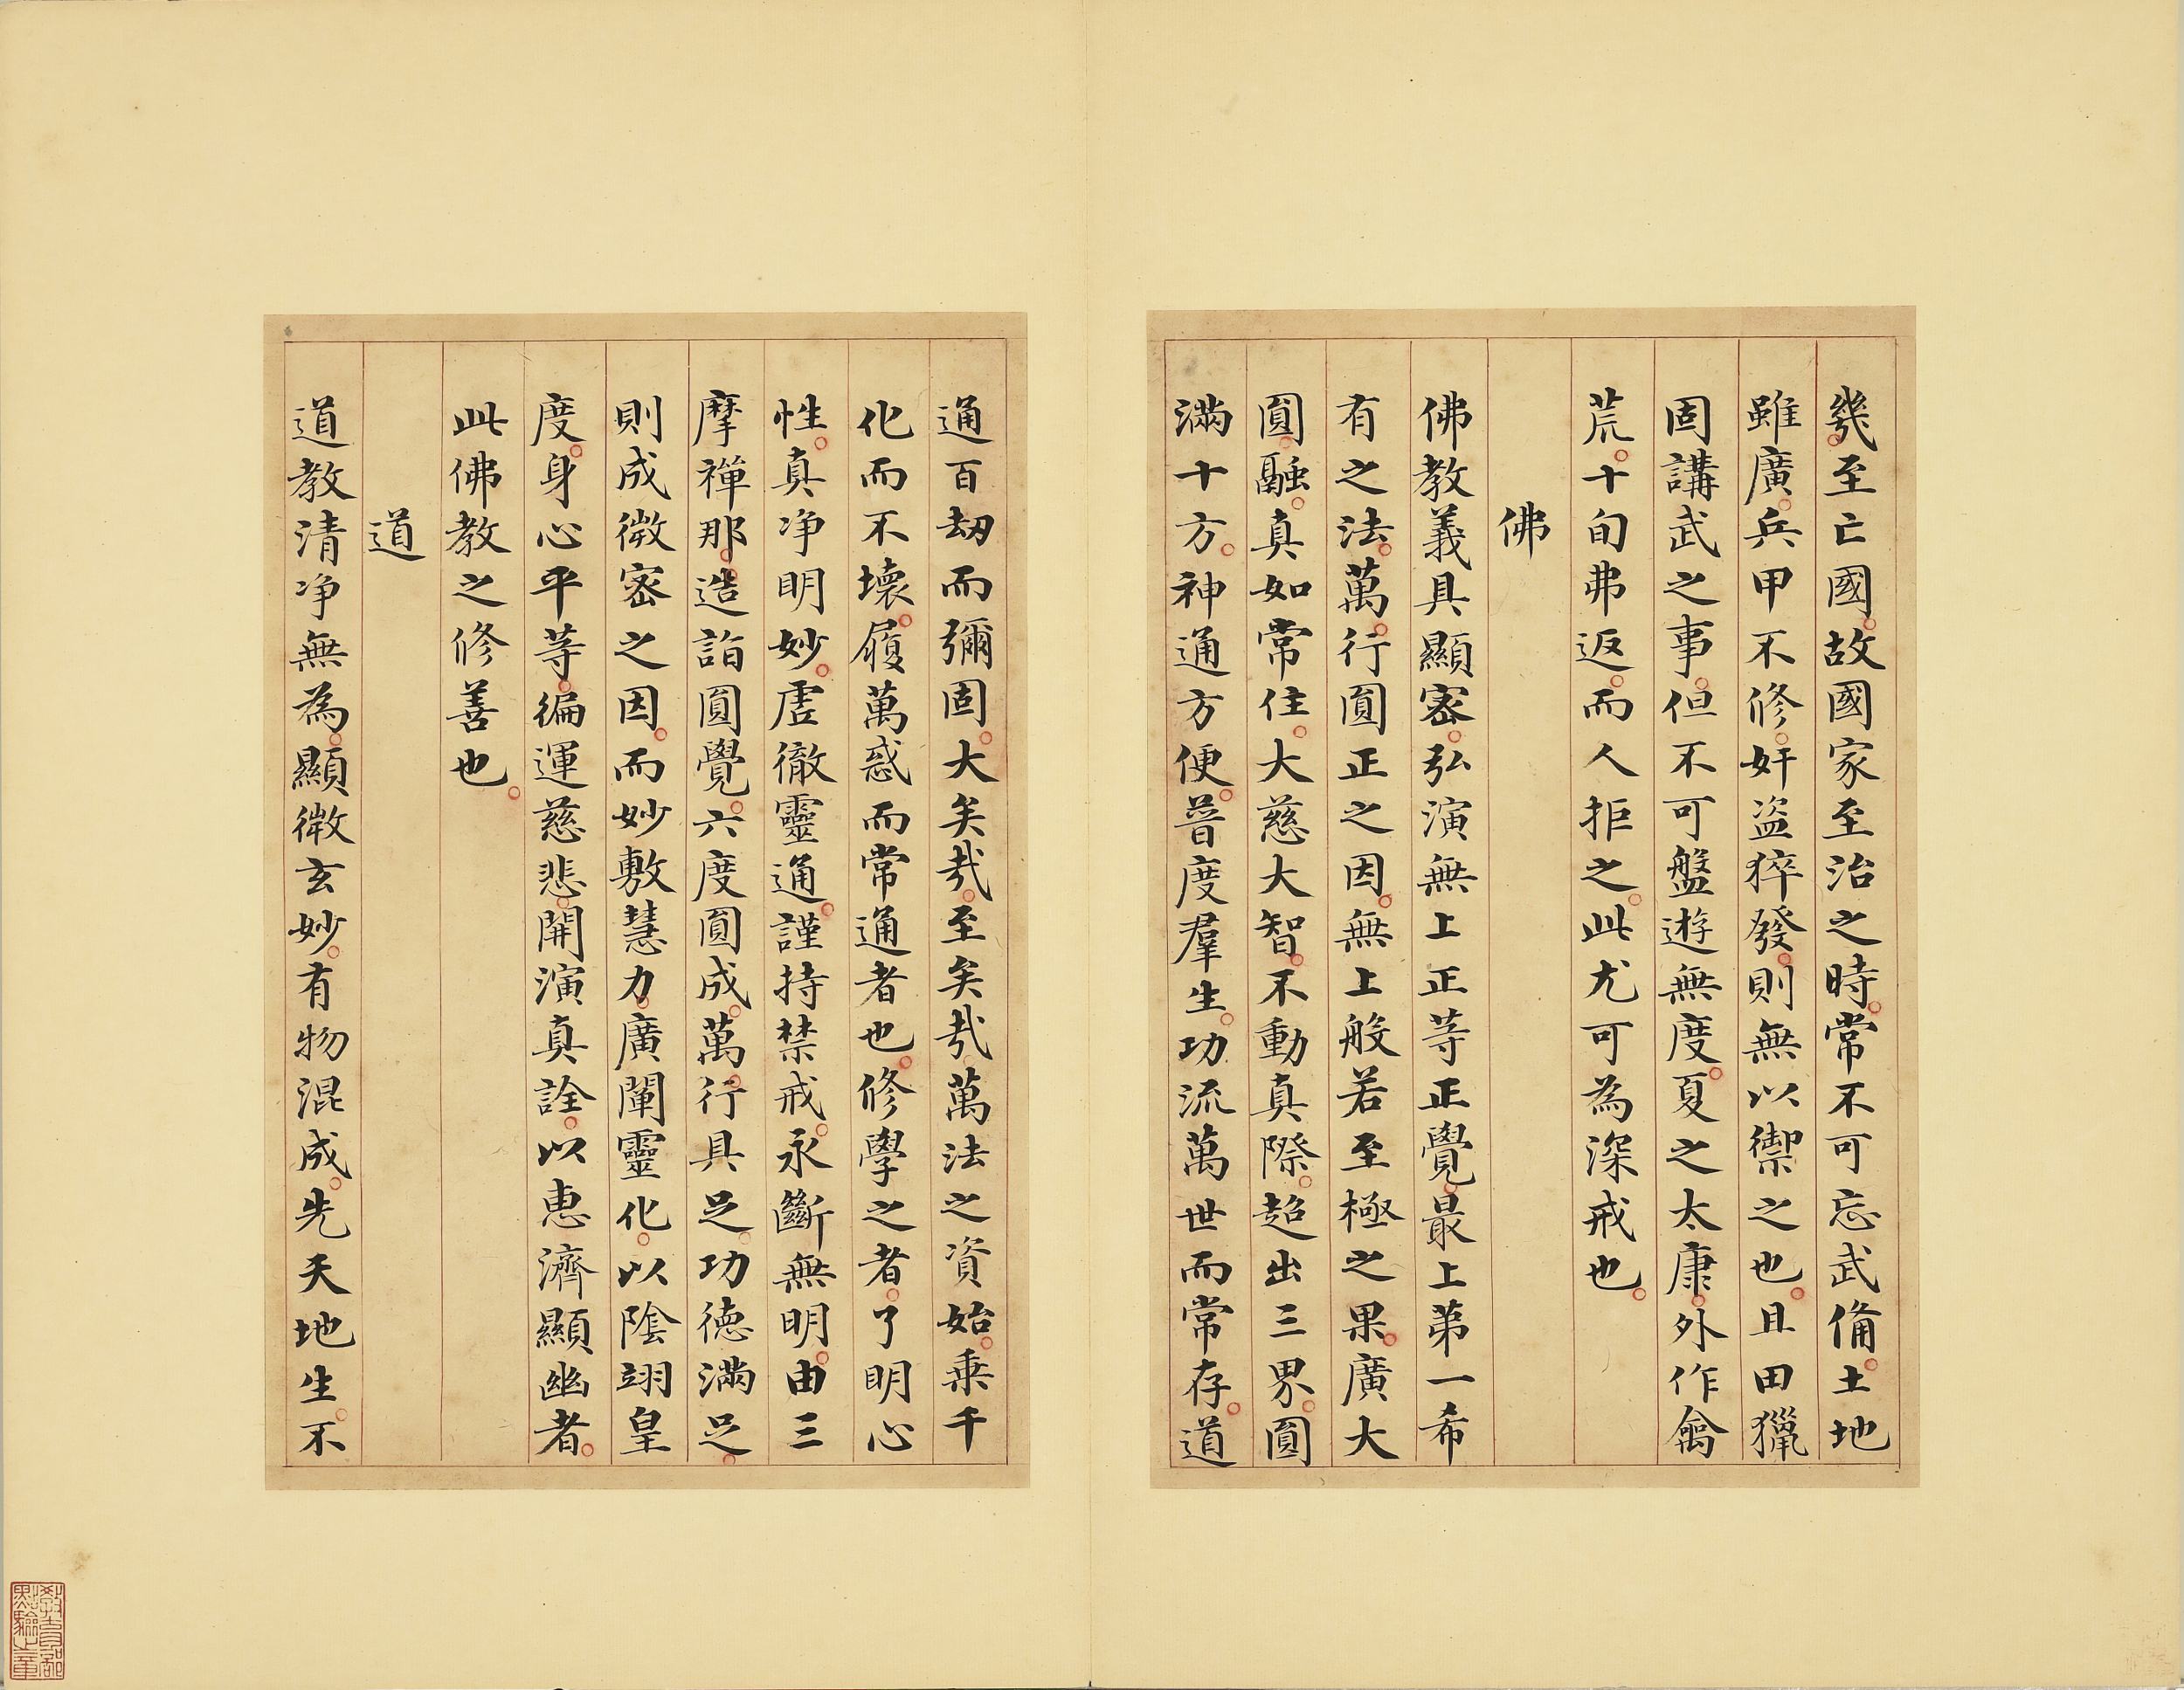 幾至亡國故國家至治之時常不可忘武備土地
雖廣兵甲不修奸盜猝發則無以禦之也且田獵
固講武之事但不可盤遊無度夏之太康外作禽
荒十旬弗返而人拒之此尤可為深戒也
佛
佛教義具顯密弘演無上正等正覺最上第一希
有之法萬行圓正之因無上般若至極之果廣大
圓融真如常住大慈大智不動真際超出三界圓
滿十方神通方便普度羣生功流萬世而常存道
通百劫而彌固大矣哉至矣哉萬法之資始乘千
化而不壞履萬惑而常通者也修學之者了明心
性真净明妙虛徹靈通謹持禁戒永斷無明由三
摩禪那造詣圓覺六度圓成萬行具足功德滿足
則成微密之因而妙敷慧力廣闡靈化以陰翊皇
度身心平等徧運慈悲開演真詮以惠濟顯幽者
此佛教之修善也
道
道教清净無為顯微玄妙有物混成先天地生不
教育部
點驗之章